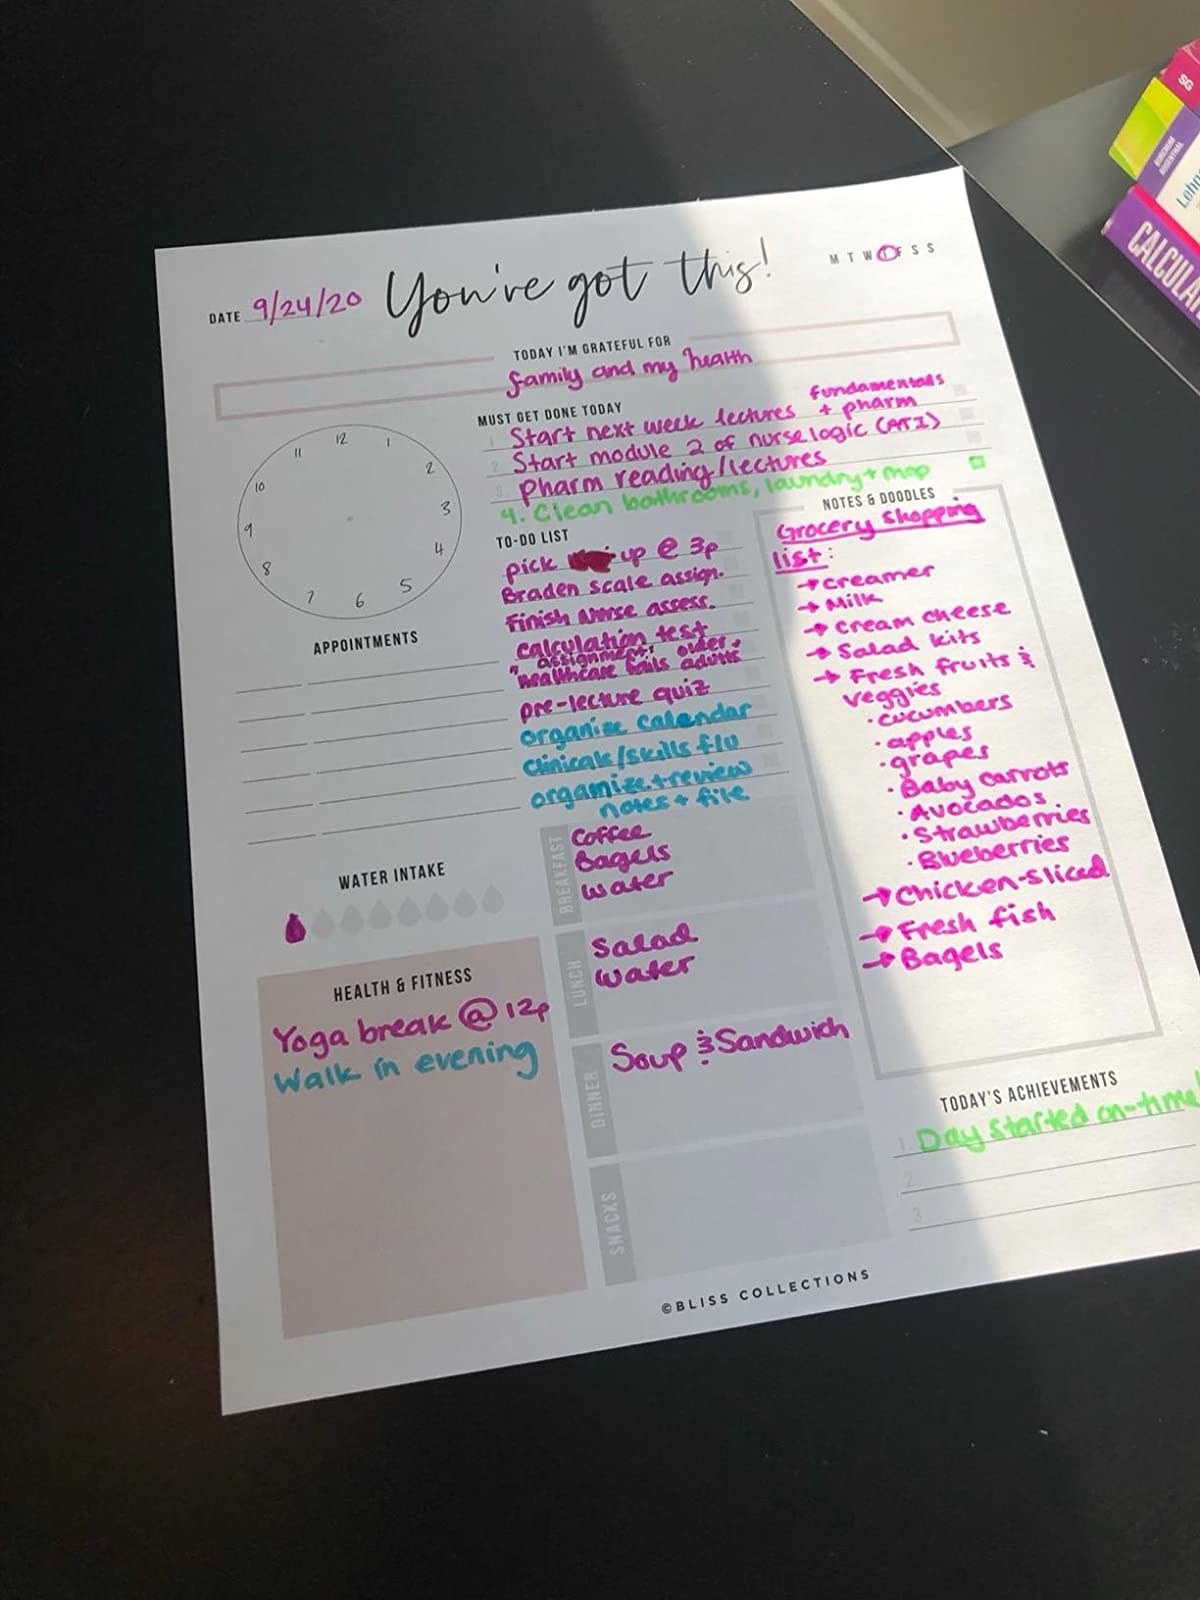 SG
BURCHUM
ROSENTHAL
CALCULA
DATE 9/24/20
You've got this!
M T W T F S S
TODAY I'M GRATEFUL FOR
family and my health
MUST GET DONE TODAY
fundamentals
1 Start next week lectures + pharm
2 Start module 2 of nurselogic (ATI)
3. Pharm reading/lectures
4. Clean bathrooms, laundry + mop
12
1
2
3
4
5
6
7
8
9
10
11
APPOINTMENTS
TO-DO LIST
pick up @ 3p
Braden scale assign.
Finish nurse assess.
calculation test
" assignment: older
healthcare fails adults
pre-lecture quiz
organize calendar
clinicals/skills f/u
organize + review
notes + file
NOTES & DOODLES
Grocery Shopping
list:
→ creamer
→ Milk
→ cream cheese
→ Salad kits
→ Fresh fruits &
veggies
· cucumbers
· apples
· grapes
· Baby carrots
· Avocados
· Strawberries
· Blueberries
→ Chicken-sliced
→ Fresh fish
→ Bagels
WATER INTAKE
BREAKFAST
Coffee
Bagels
Water
LUNCH
Salad
Water
DINNER
Soup & Sandwich
SNACKS
HEALTH & FITNESS
Yoga break @ 12p
Walk in evening
TODAY'S ACHIEVEMENTS
1. Day started on-time!
2
3
©BLISS COLLECTIONS